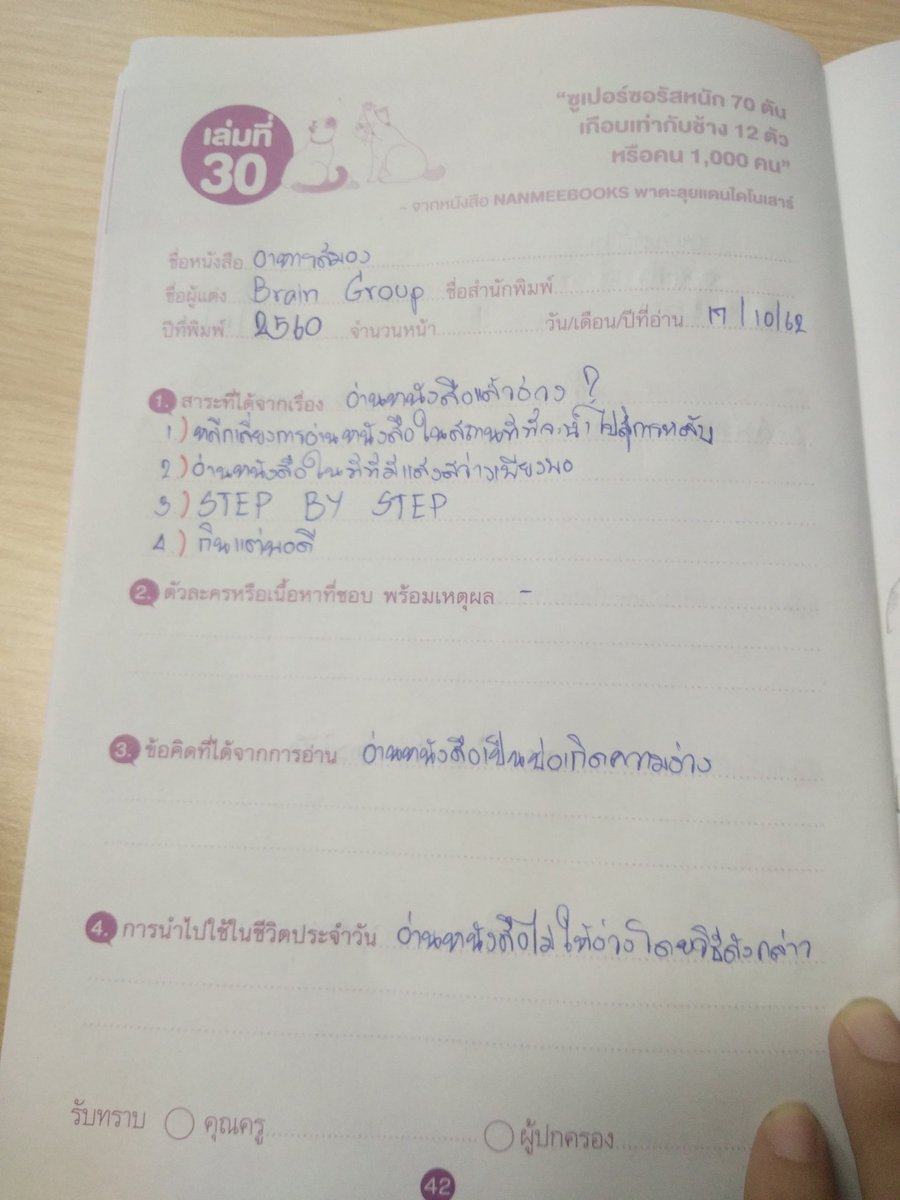 เล่มที่
30
"ซูเปอร์ซอรัสหนัก 70 ตัน
เกือบเท่ากับช้าง 12 ตัว
หรือคน 1,000 คน"
จากหนังสือ NANMEEBOOKS พาตะลุยแดนไดโนเสาร์
ชื่อหนังสือ อาหารสมอง
ชื่อผู้แต่ง Brain Group ชื่อสำนักพิมพ์
ปีที่พิมพ์ 2560 จำนวนหน้า วัน/เดือน/ปีที่อ่าน 17/10/62
1. สาระที่ได้จากเรื่อง อ่านหนังสือแล้วง่วง ?
1) หลีกเลี่ยงการอ่านหนังสือในสถานที่ที่จะนำไปสู่การหลับ
2) อ่านหนังสือในที่ที่มีแสงสว่างเพียงพอ
3) STEP BY STEP
4) กินแต่พอดี
2. ตัวละครหรือเนื้อหาที่ชอบ พร้อมเหตุผล -
3. ข้อคิดที่ได้จากการอ่าน อ่านหนังสือเป็นบ่อเกิดความง่วง
4. การนำไปใช้ในชีวิตประจำวัน อ่านหนังสือไม่ให้ง่วงโดยวิธีดังกล่าว
รับทราบ คุณครู ผู้ปกครอง
42